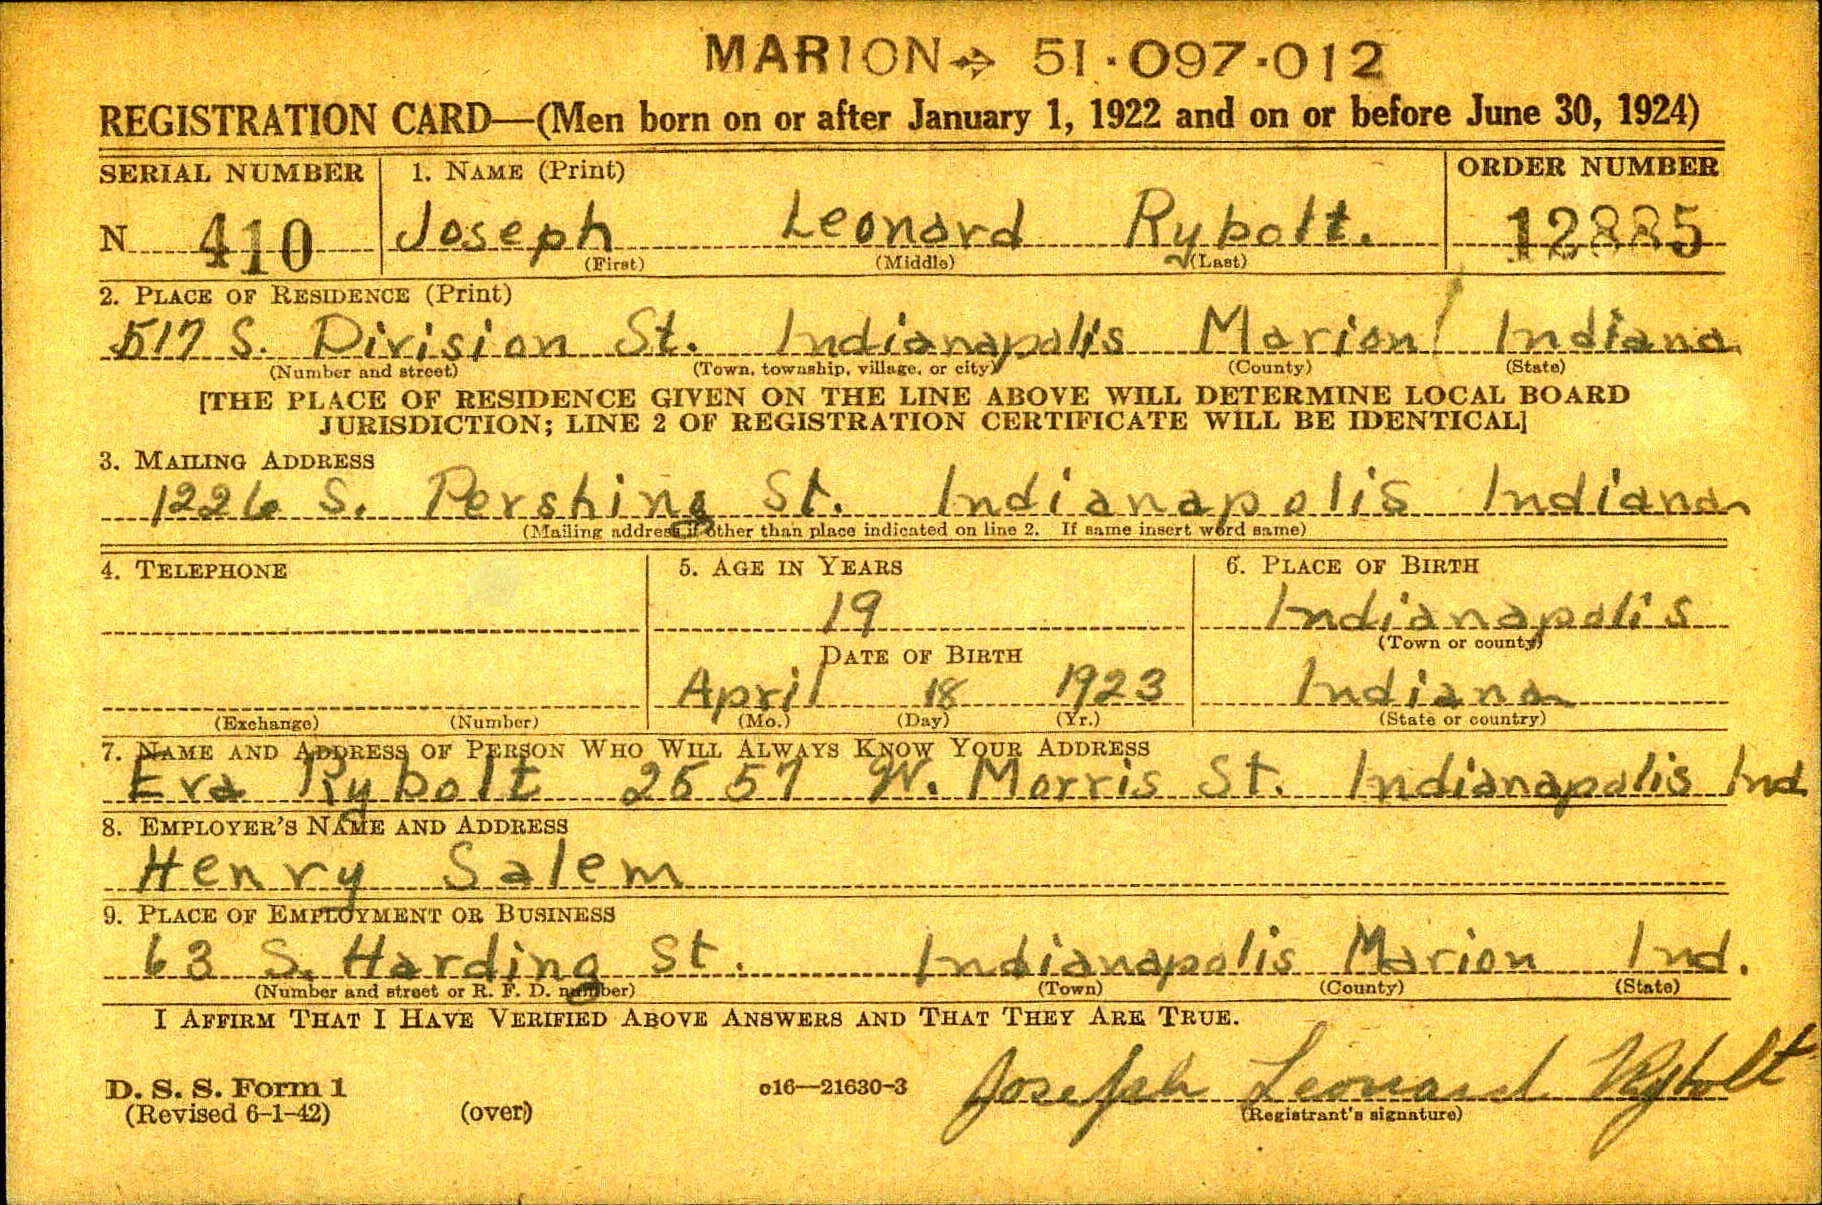 MARION→ 51·097·012
REGISTRATION CARD—(Men born on or after January 1, 1922 and on or before June 30, 1924)
SERIAL NUMBER 1. NAME (Print) ORDER NUMBER
N 410 Joseph Leonard Rybolt. 12885
(First) (Middle) (Last)
2. PLACE OF RESIDENCE (Print)
517 S. Division St. Indianapolis Marion Indiana
(Number and street) (Town, township, village, or city) (County) (State)
[THE PLACE OF RESIDENCE GIVEN ON THE LINE ABOVE WILL DETERMINE LOCAL BOARD
JURISDICTION; LINE 2 OF REGISTRATION CERTIFICATE WILL BE IDENTICAL]
3. MAILING ADDRESS
1226 S. Pershing St. Indianapolis Indiana
(Mailing address if other than place indicated on line 2. If same insert word same)
4. TELEPHONE 5. AGE IN YEARS 6. PLACE OF BIRTH
19 Indianapolis
(Town or county)
DATE OF BIRTH
April 18 1923 Indiana
(Exchange) (Number) (Mo.) (Day) (Yr.) (State or country)
7. NAME AND ADDRESS OF PERSON WHO WILL ALWAYS KNOW YOUR ADDRESS
Eva Rybolt 2557 W. Morris St. Indianapolis Ind
8. EMPLOYER'S NAME AND ADDRESS
Henry Salem
9. PLACE OF EMPLOYMENT OR BUSINESS
63 S. Harding St. Indianapolis Marion Ind.
(Number and street or R. F. D. number) (Town) (County) (State)
I AFFIRM THAT I HAVE VERIFIED ABOVE ANSWERS AND THAT THEY ARE TRUE.
D. S. S. Form 1 o16—21630-3 Joseph Leonard Rybolt
(Revised 6-1-42) (over) (Registrant's signature)